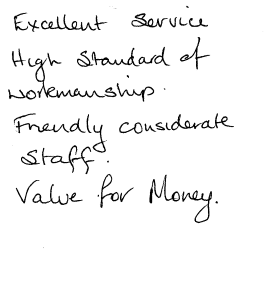 Excellent Service
High Standard of
workmanship.
Friendly considerate
Staff.
Value for Money.